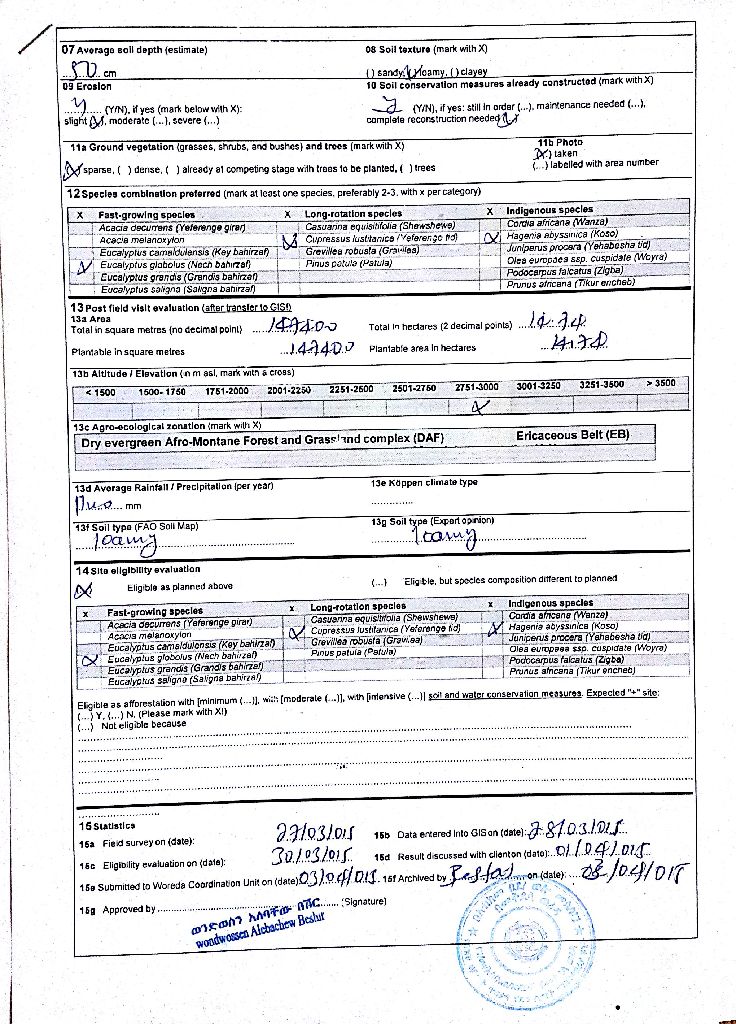 07 Average soil depth (estimate)
08 Soil texture (mark with X)
50 cm
( ) sandy, (X) loamy, ( ) clayey
09 Erosion
10 Soil conservation measures already constructed (mark with X)
Y (Y/N), if yes (mark below with X):
(Y/N), if yes: still in order (...), maintenance needed (...),
slight (X), moderate (...), severe (...)
complete reconstruction needed (X)
11a Ground vegetation (grasses, shrubs, and bushes) and trees (mark with X)
11b Photo
(X) taken
(X) sparse, ( ) dense, ( ) already at competing stage with trees to be planted, ( ) trees
(...) labelled with area number
12 Species combination preferred (mark at least one species, preferably 2-3, with x per category)
X Fast-growing species X Long-rotation species X Indigenous species
Acacia decurrens (Yeferenge girar) Casuarina equisitifolia (Shewshewe) Cordia africana (Wanza)
Acacia melanoxylon X Cupressus lustitanica (Yeferenge tid) X Hagenia abyssinica (Koso)
Eucalyptus camaldulensis (Key bahirzaf) Grevillea robusta (Gravilea) Juniperus procera (Yehabesha tid)
X Eucalyptus globolus (Nech bahirzaf) Pinus patula (Patula) Olea europaea ssp. cuspidate (Woyra)
Eucalyptus grandis (Grandis bahirzaf) Podocarpus falcatus (Zigba)
Eucalyptus saligna (Saligna bahirzaf) Prunus africana (Tikur encheb)
13 Post field visit evaluation (after transfer to GIS!)
13a Area
Total in square metres (no decimal point) 147400 Total in hectares (2 decimal points) 14.74
Plantable in square metres 147400 Plantable area in hectares 14.74
13b Altitude / Elevation (in m asl, mark with a cross)
< 1500 1500-1750 1751-2000 2001-2250 2251-2500 2501-2750 2751-3000 3001-3250 3251-3500 > 3500
X
13c Agro-ecological zonation (mark with X)
Dry evergreen Afro-Montane Forest and Grassland complex (DAF) Ericaceous Belt (EB)
13d Average Rainfall / Precipitation (per year)
13e Köppen climate type
mm
13f Soil type (FAO Soil Map)
13g Soil type (Expert opinion)
loamy
loamy
14 Site eligibility evaluation
(X) Eligible as planned above
(...) Eligible, but species composition different to planned
x Fast-growing species x Long-rotation species x Indigenous species
Acacia decurrens (Yeferenge girar) Casuarina equisitifolia (Shewshewe) Cordia africana (Wanza)
Acacia melanoxylon X Cupressus lustitanica (Yeferenge tid) X Hagenia abyssinica (Koso)
Eucalyptus camaldulensis (Key bahirzaf) Grevillea robusta (Gravilea) Juniperus procera (Yehabesha tid)
X Eucalyptus globolus (Nech bahirzaf) Pinus patula (Patula) Olea europaea ssp. cuspidate (Woyra)
Eucalyptus grandis (Grandis bahirzaf) Podocarpus falcatus (Zigba)
Eucalyptus saligna (Saligna bahirzaf) Prunus africana (Tikur encheb)
Eligible as afforestation with [minimum (...)], with [moderate (...)], with [intensive (...)] soil and water conservation measures. Expected "+" site:
(...) Y, (...) N. (Please mark with X!)
(...) Not eligible because
15 Statistics
15a Field survey on (date): 27/03/015 15b Data entered into GIS on (date): 28/03/015
15c Eligibility evaluation on (date): 30/03/015 15d Result discussed with client on (date): 01/04/015
15e Submitted to Woreda Coordination Unit on (date): 03/04/015 15f Archived by on (date): 03/04/015
15g Approved by (Signature)
ወንድወሰን አለባቸው በሹር
wondwossen Alebachew Beshur